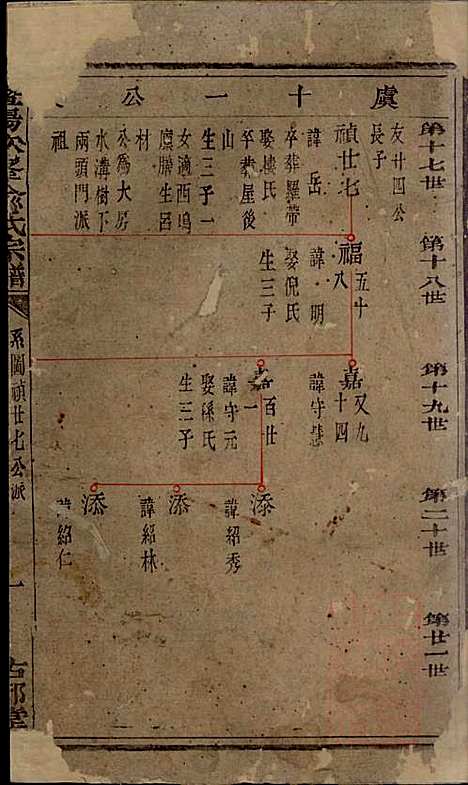 虞十一公
第十七世
第十八世
第十九世
第二十世
第廿一世
友廿四公
長子
禎廿七
諱岳
卒葬羅帶
山
娶樓氏
卒葬屋後
生三子一
女適西塢
廩膳生呂
材
公為大房
水溝樹下
兩頭門派
祖
福五十八
諱明
娶倪氏
生三子
嘉又九十四
諱守慧
嘉百廿一
諱守元
娶孫氏
生三子
添
諱紹秀
添
諱紹林
添
諱紹仁
氏宗譜
系圖禎廿七公派
一